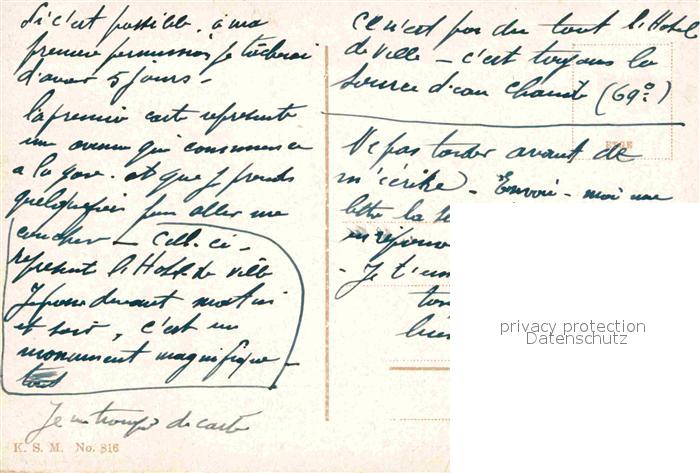 Si c'est possible. à ma
première permission je tâcherai
d'avoir 5 jours -
la première carte représente
une avenue qui commence
a la gare. et que je prends
quelquefois pour aller me
coucher - Celle-ci -
représente l'Hôtel de ville
Je passe devant matin
et soir, c'est un
monument magnifique -
tout
Je me trompe de carte
K. S. M. No. 816
Ce n'est pas du tout l'Hotel
de Ville - c'est toujours la
source d'eau chaude (69°)
Ne pas tarder avant de
m'écrire - Envoi-moi une
lettre la
en réponse
- Je t'em
privacy protection
Datenschutz